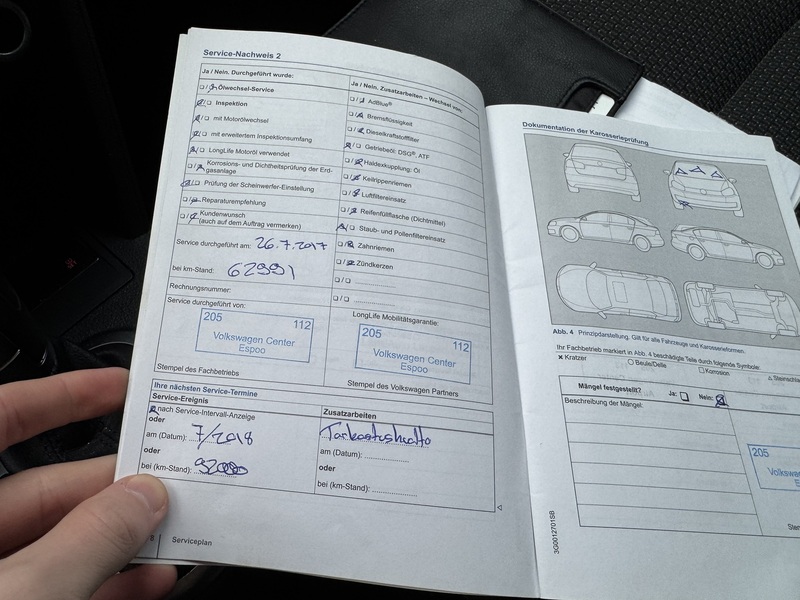 Service-Nachweis 2
Ja / Nein. Durchgeführt wurde:
Ölwechsel-Service
Inspektion
mit Motorölwechsel
mit erweitertem Inspektionsumfang
LongLife Motoröl verwendet
Korrosions- und Dichtheitsprüfung der Erd-
gasanlage
Prüfung der Scheinwerfer-Einstellung
Reparaturempfehlung
Kundenwunsch
(auch auf dem Auftrag vermerken)
Service durchgeführt am: 26.7.2017
bei km-Stand: 62991
Rechnungsnummer:
Service durchgeführt von:
205 112
Volkswagen Center
Espoo
Stempel des Fachbetriebs
Ja / Nein. Zusatzarbeiten – Wechsel von:
AdBlue®
Bremsflüssigkeit
Dieselkraftstofffilter
Getriebeöl: DSG®, ATF
Haldexkupplung: Öl
Keilrippenriemen
Luftfiltereinsatz
Reifenfüllflasche (Dichtmittel)
Staub- und Pollenfiltereinsatz
Zahnriemen
Zündkerzen
LongLife Mobilitätsgarantie:
205 112
Volkswagen Center
Espoo
Stempel des Volkswagen Partners
Ihre nächsten Service-Termine
Service-Ereignis
nach Service-Intervall-Anzeige
oder
am (Datum): 7/2018
oder
bei (km-Stand): 92000
Zusatzarbeiten
Tarkastushuolto
am (Datum):
oder
bei (km-Stand):
8 Serviceplan
Dokumentation der Karosserieprüfung
Abb. 4 Prinzipdarstellung. Gilt für alle Fahrzeuge und Karosserieformen.
Ihr Fachbetrieb markiert in Abb. 4 beschädigte Teile durch folgende Symbole:
x Kratzer ○ Beule/Delle □ Korrosion △ Steinschl
Mängel festgestellt? Ja: Nein:
Beschreibung der Mängel:
205
Volkswa
E
Stem
3G0012701SB